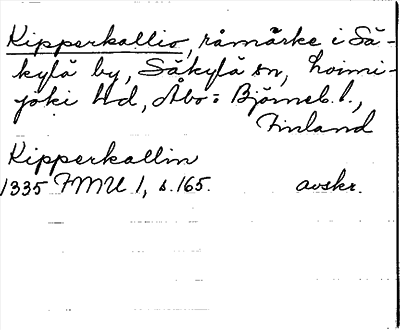 Kipperkallio, råmärke i Sä-
kylä by, Säkylä sn, Loimi-
joki hd, Åbo- Björneb. l.,
Finland
Kipperkallin
1335 FMU 1, s. 165. avskr.